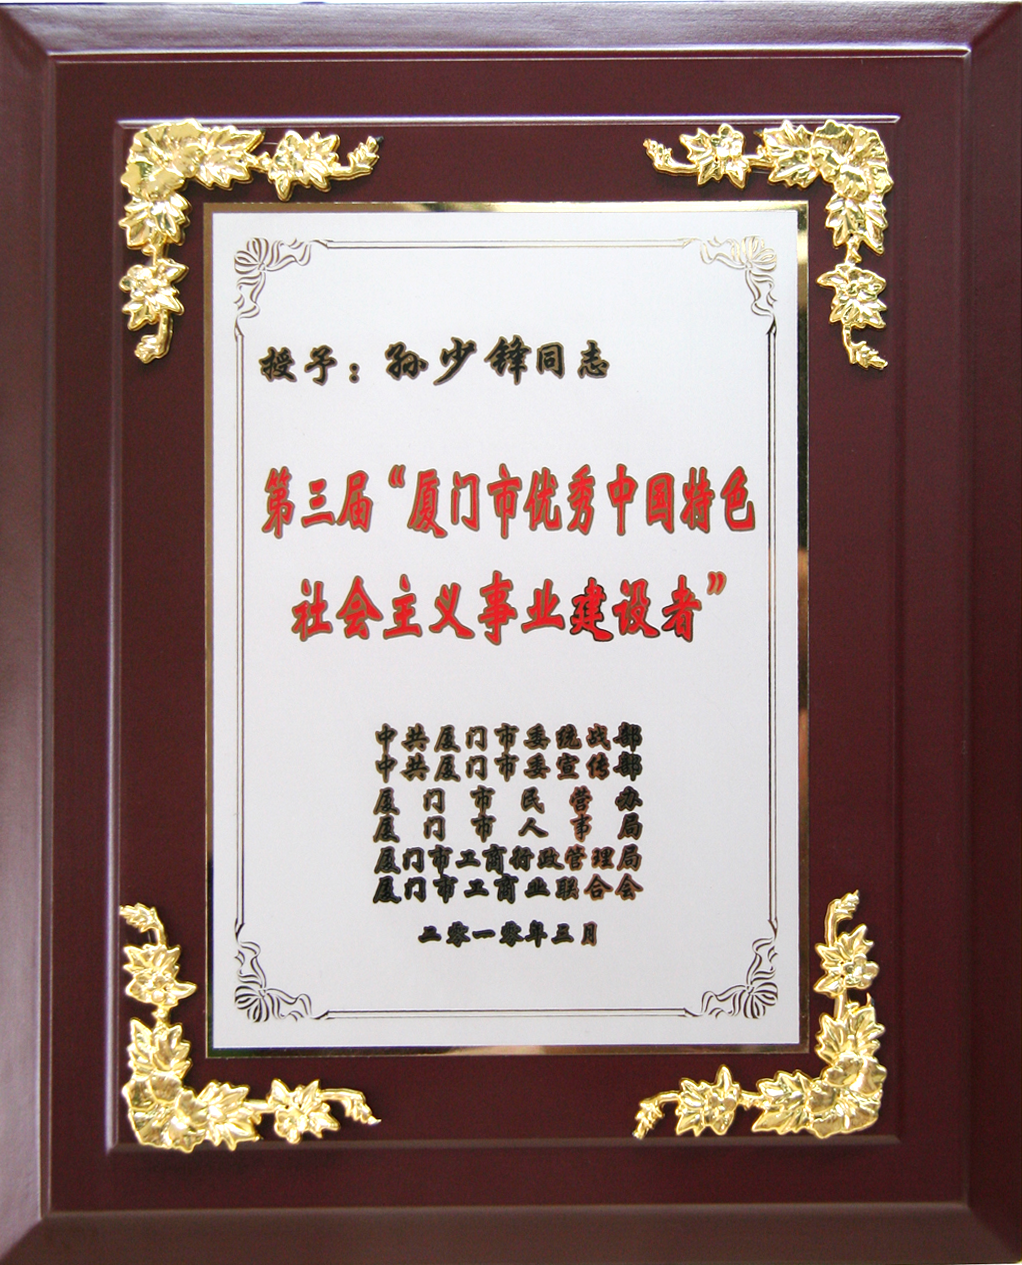 授予：孙少锋同志
第三届“厦门市优秀中国特色
社会主义事业建设者”
中共厦门市委统战部
中共厦门市委宣传部
厦门市民营办
厦门市人事局
厦门市工商行政管理局
厦门市工商业联合会
二零一零年三月